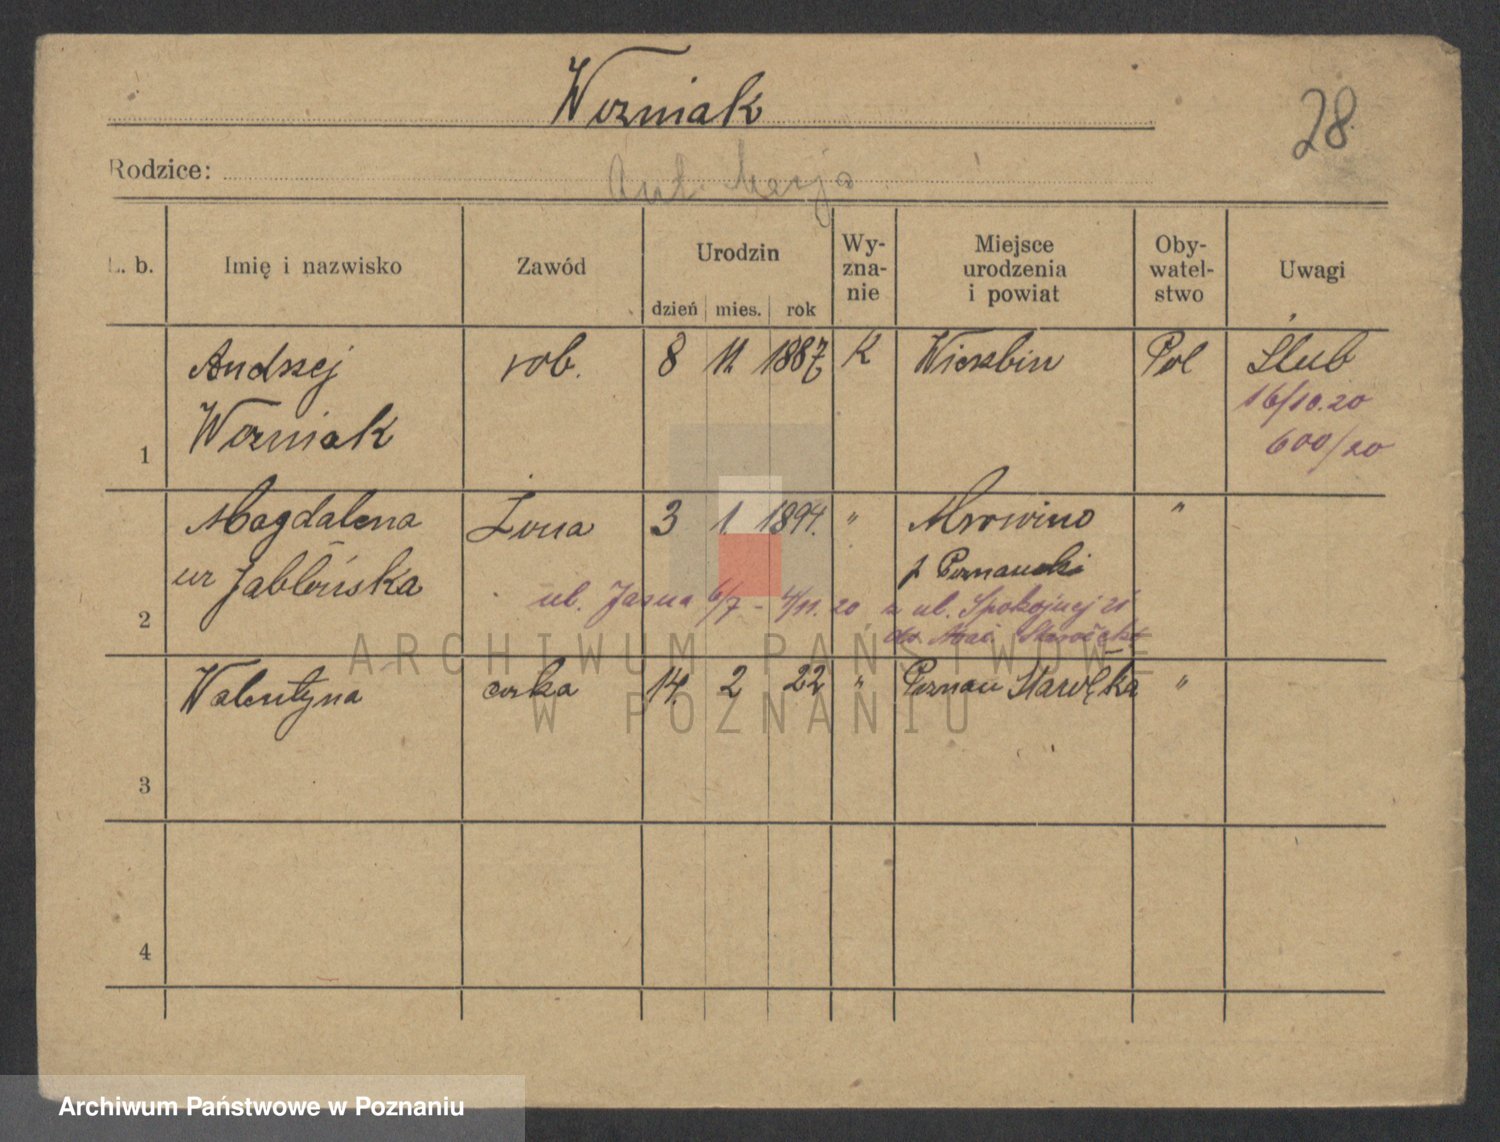 Wozniak
28
Rodzice:
L. b.
Imię i nazwisko
Zawód
Urodzin
dzień mies. rok
Wy-
zna-
nie
Miejsce
urodzenia
i powiat
Oby-
watel-
stwo
Uwagi
1 Andrzej rob. 8 11. 1887 K Pol Ślub
Wozniak
16/10.20
600/20
2 Magdalena Żona 3 1. 1894. " Mrowino "
ur Jabłońska
p Poznański
ul. Jasna 6/7 - 4/11.20 z ul. Spokojnej 21
3 Walentyna corka 14. 2 22 " Poznan Starołęka "
4
ARCHIWUM PAŃSTWOWE
W POZNANIU
Archiwum Państwowe w Poznaniu